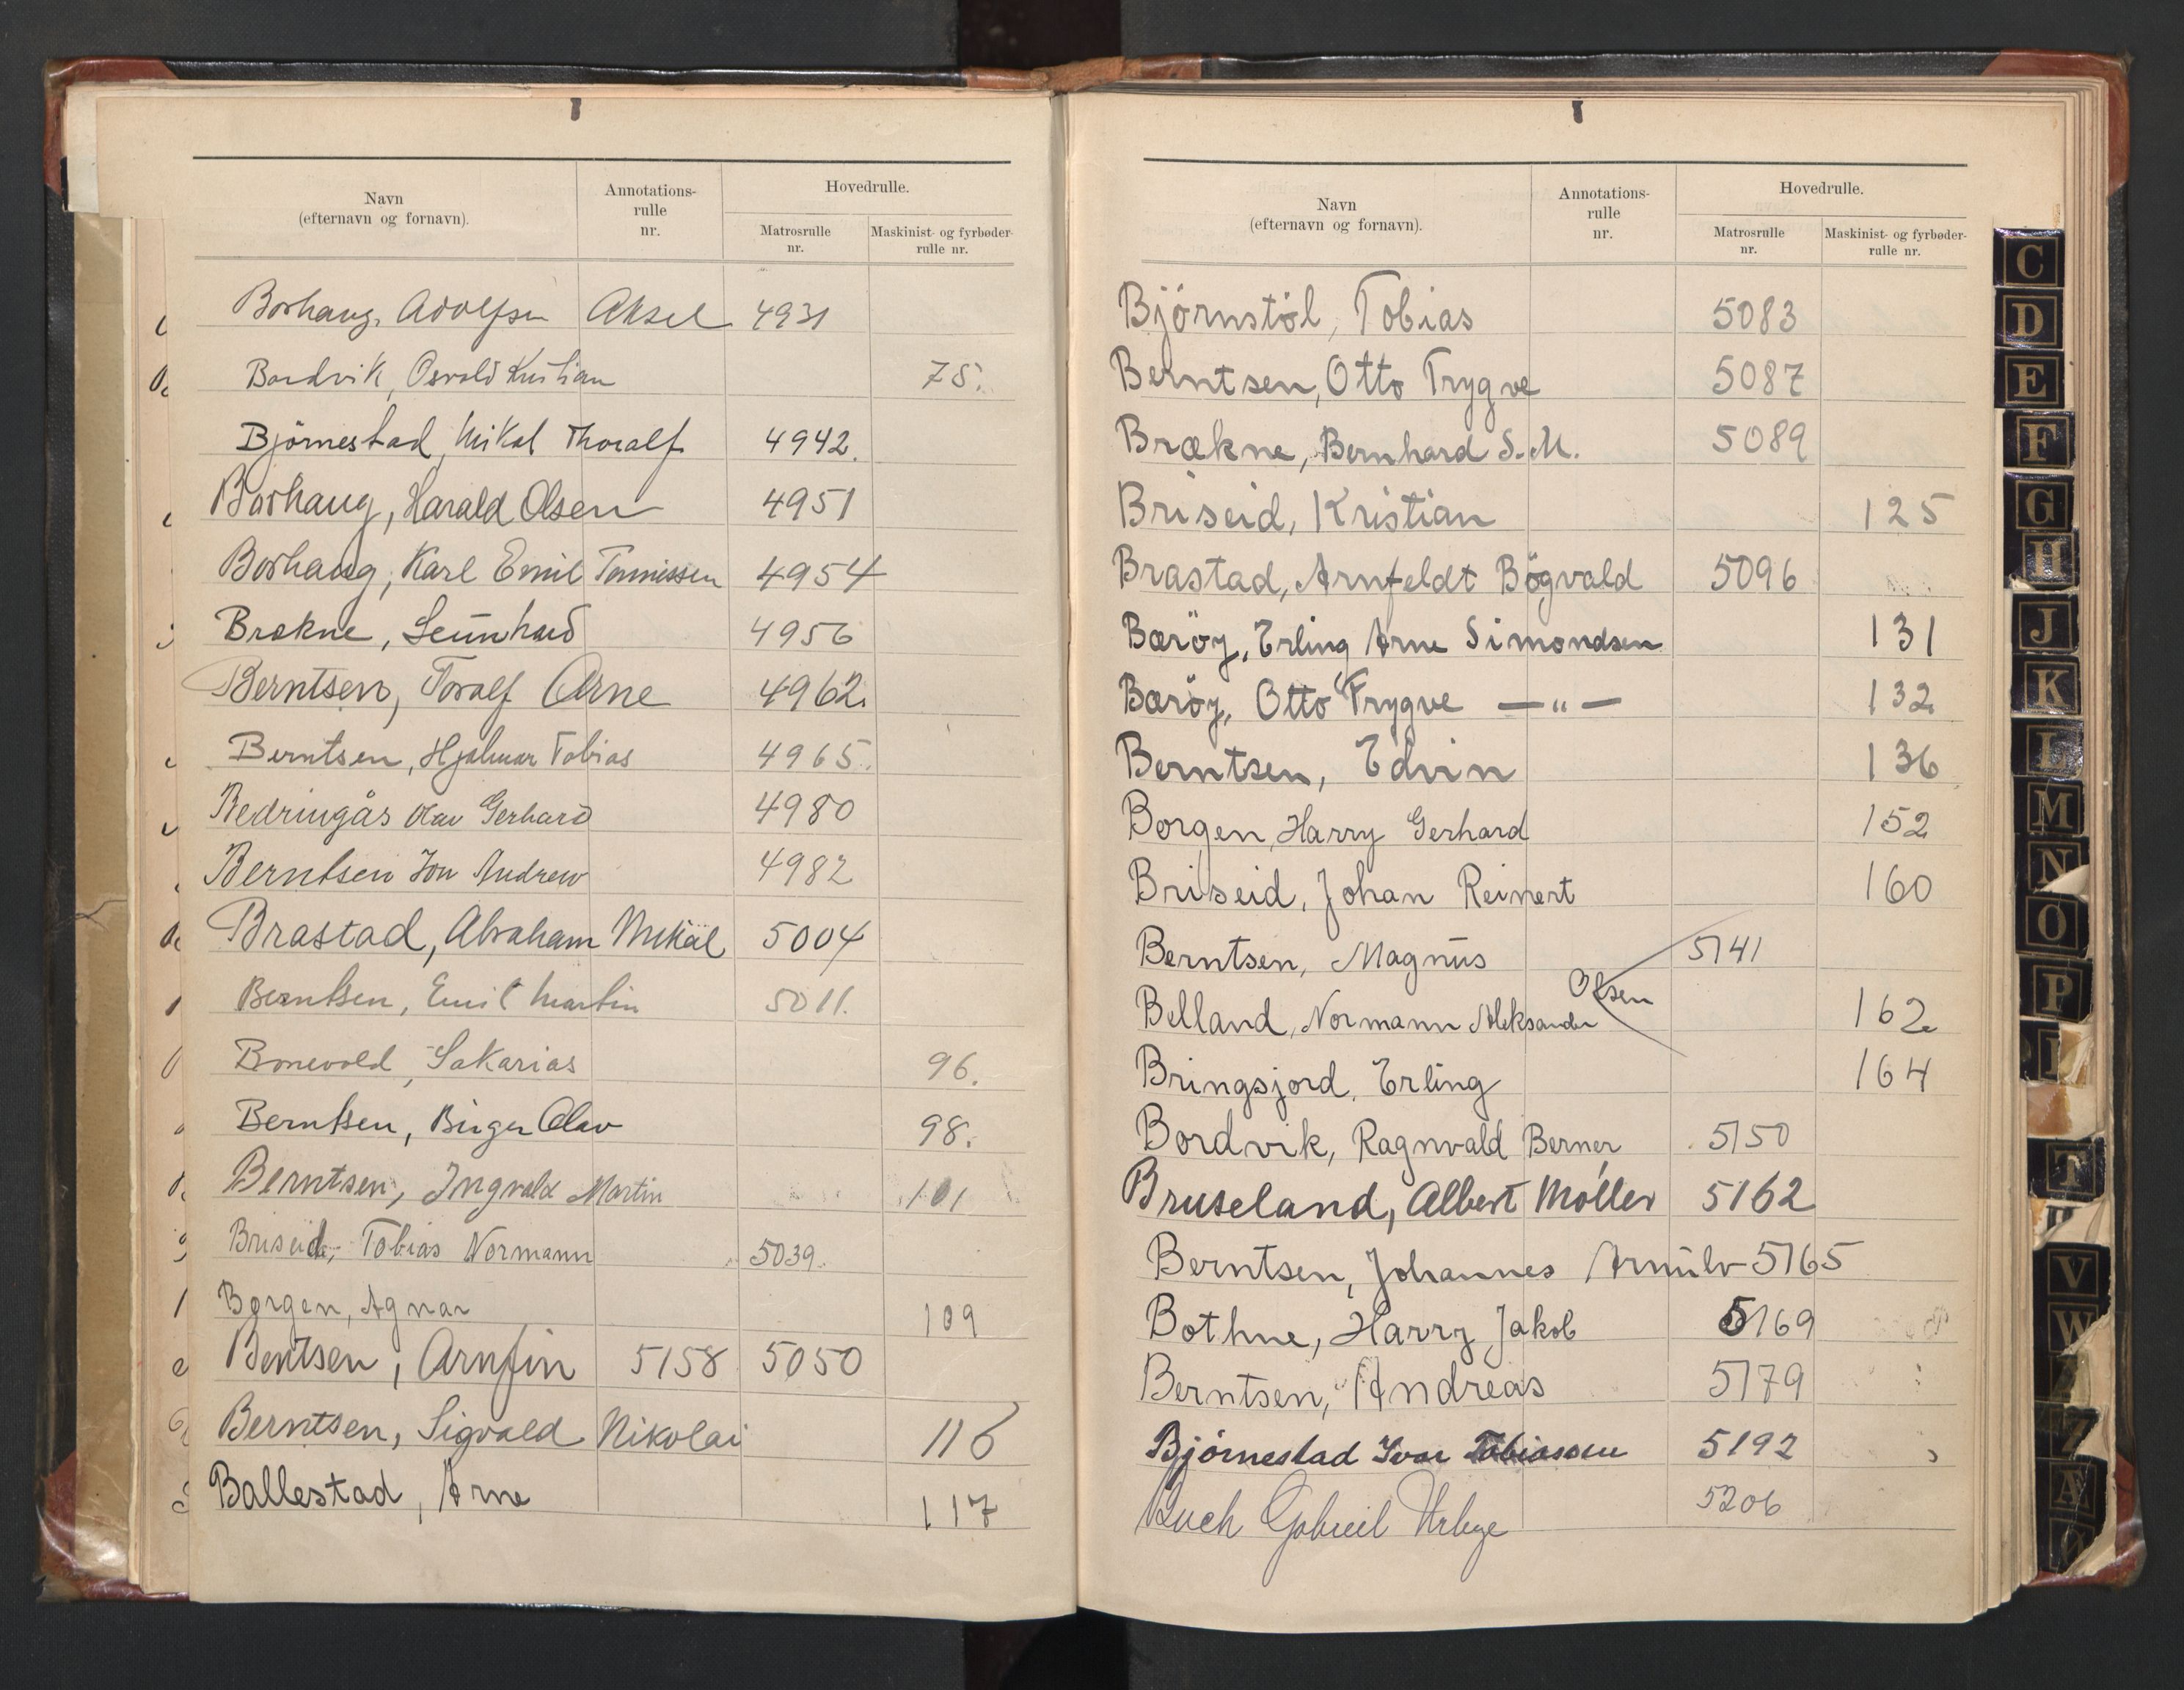 Navn
(efternavn og fornavn).
Annotations-
rulle
nr.
Hovedrulle.
Matrosrulle
nr.
Maskinist- og fyrbøder-
rulle nr.
Borhaug, Adolfsen Aksel 4931
Bordvik, Osvald Kristian 75.
Björnestad, Mikal Thoralf 4942.
Borhaug, Harald Olsen 4951
Borhaug, Karl Emil Tønnissen 4954
Brækne, Leonhard 4956
Berntsen, Toralf Arne 4962.
Berntsen, Hjalmar Tobias 4965.
Bedringås Olav Gerhard 4980
Berntsen Jon Andrew 4982
Brastad, Abraham Mikal 5004
Berntsen, Emil Martin 5011.
Bonevold, Sakarias 96.
Berntsen, Birger Olav 98.
Berntsen, Ingvald Martin 101
Briseid, Tobias Normann 5039.
Borgen, Agnar 109
Bentsen, Arnfin 5158 5050
Berntsen, Sigvald Nikolai 116
Ballestad, Arne 117
Navn
(efternavn og fornavn).
Annotations-
rulle
nr.
Hovedrulle.
Matrosrulle
nr.
Maskinist- og fyrbøder-
rulle nr.
Björnstöl, Tobias 5083
Berntsen, Otto Trygve 5087
Brækne, Bernhard S. M. 5089
Briseid, Kristian 125
Brastad, Arnfeldt Bögvald 5096
Bæröy, Erling Arne Simondsen 131
Bæröy, Otto Trygve —"— 132
Berntsen, Edvin 136
Borgen, Harry Gerhard 152
Briseid, Johan Reinert 160
Berntsen, Magnus 5141
Olsen
Belland, Normann Aleksander 162
Bringsjord, Erling 164
Bordvik, Ragnvald Berner 5150
Bruseland, Albert Möller 5162
Berntsen, Johannes Arnulv 5165
Bothne, Harry Jakob 5169
Berntsen, Andreas 5179
Björnestad Ivar Tobiassen 5192
Buch Gabriel 5206
C
D
E
F
G
H
J
K
L
M
N
O
P
T
V
W
Z
Æ